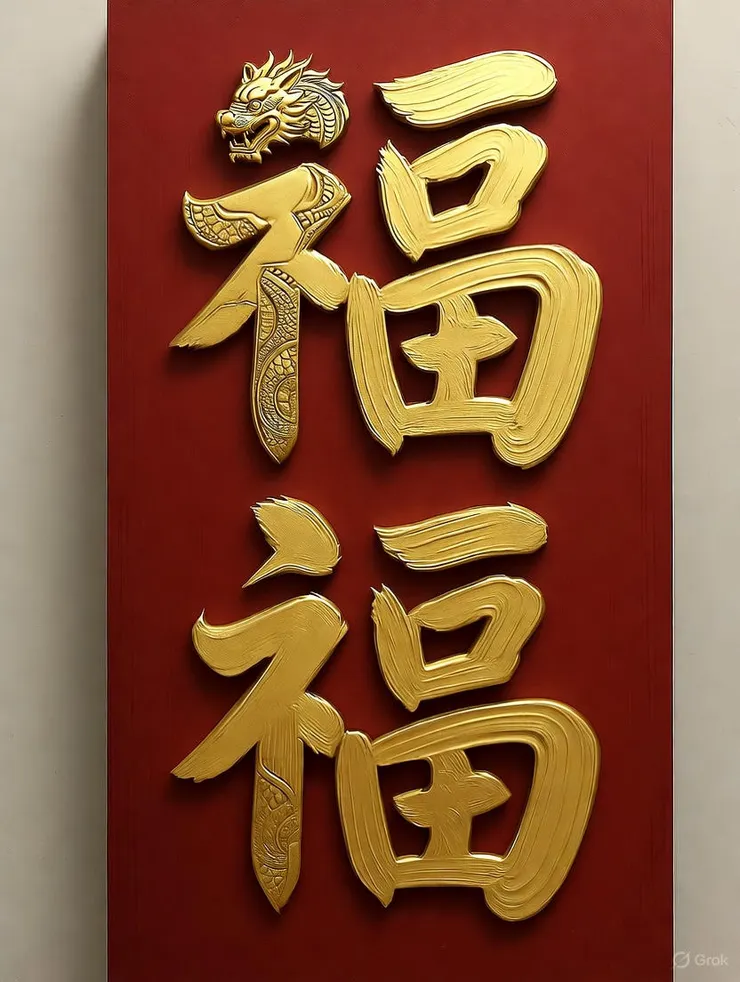 福
福
Grok